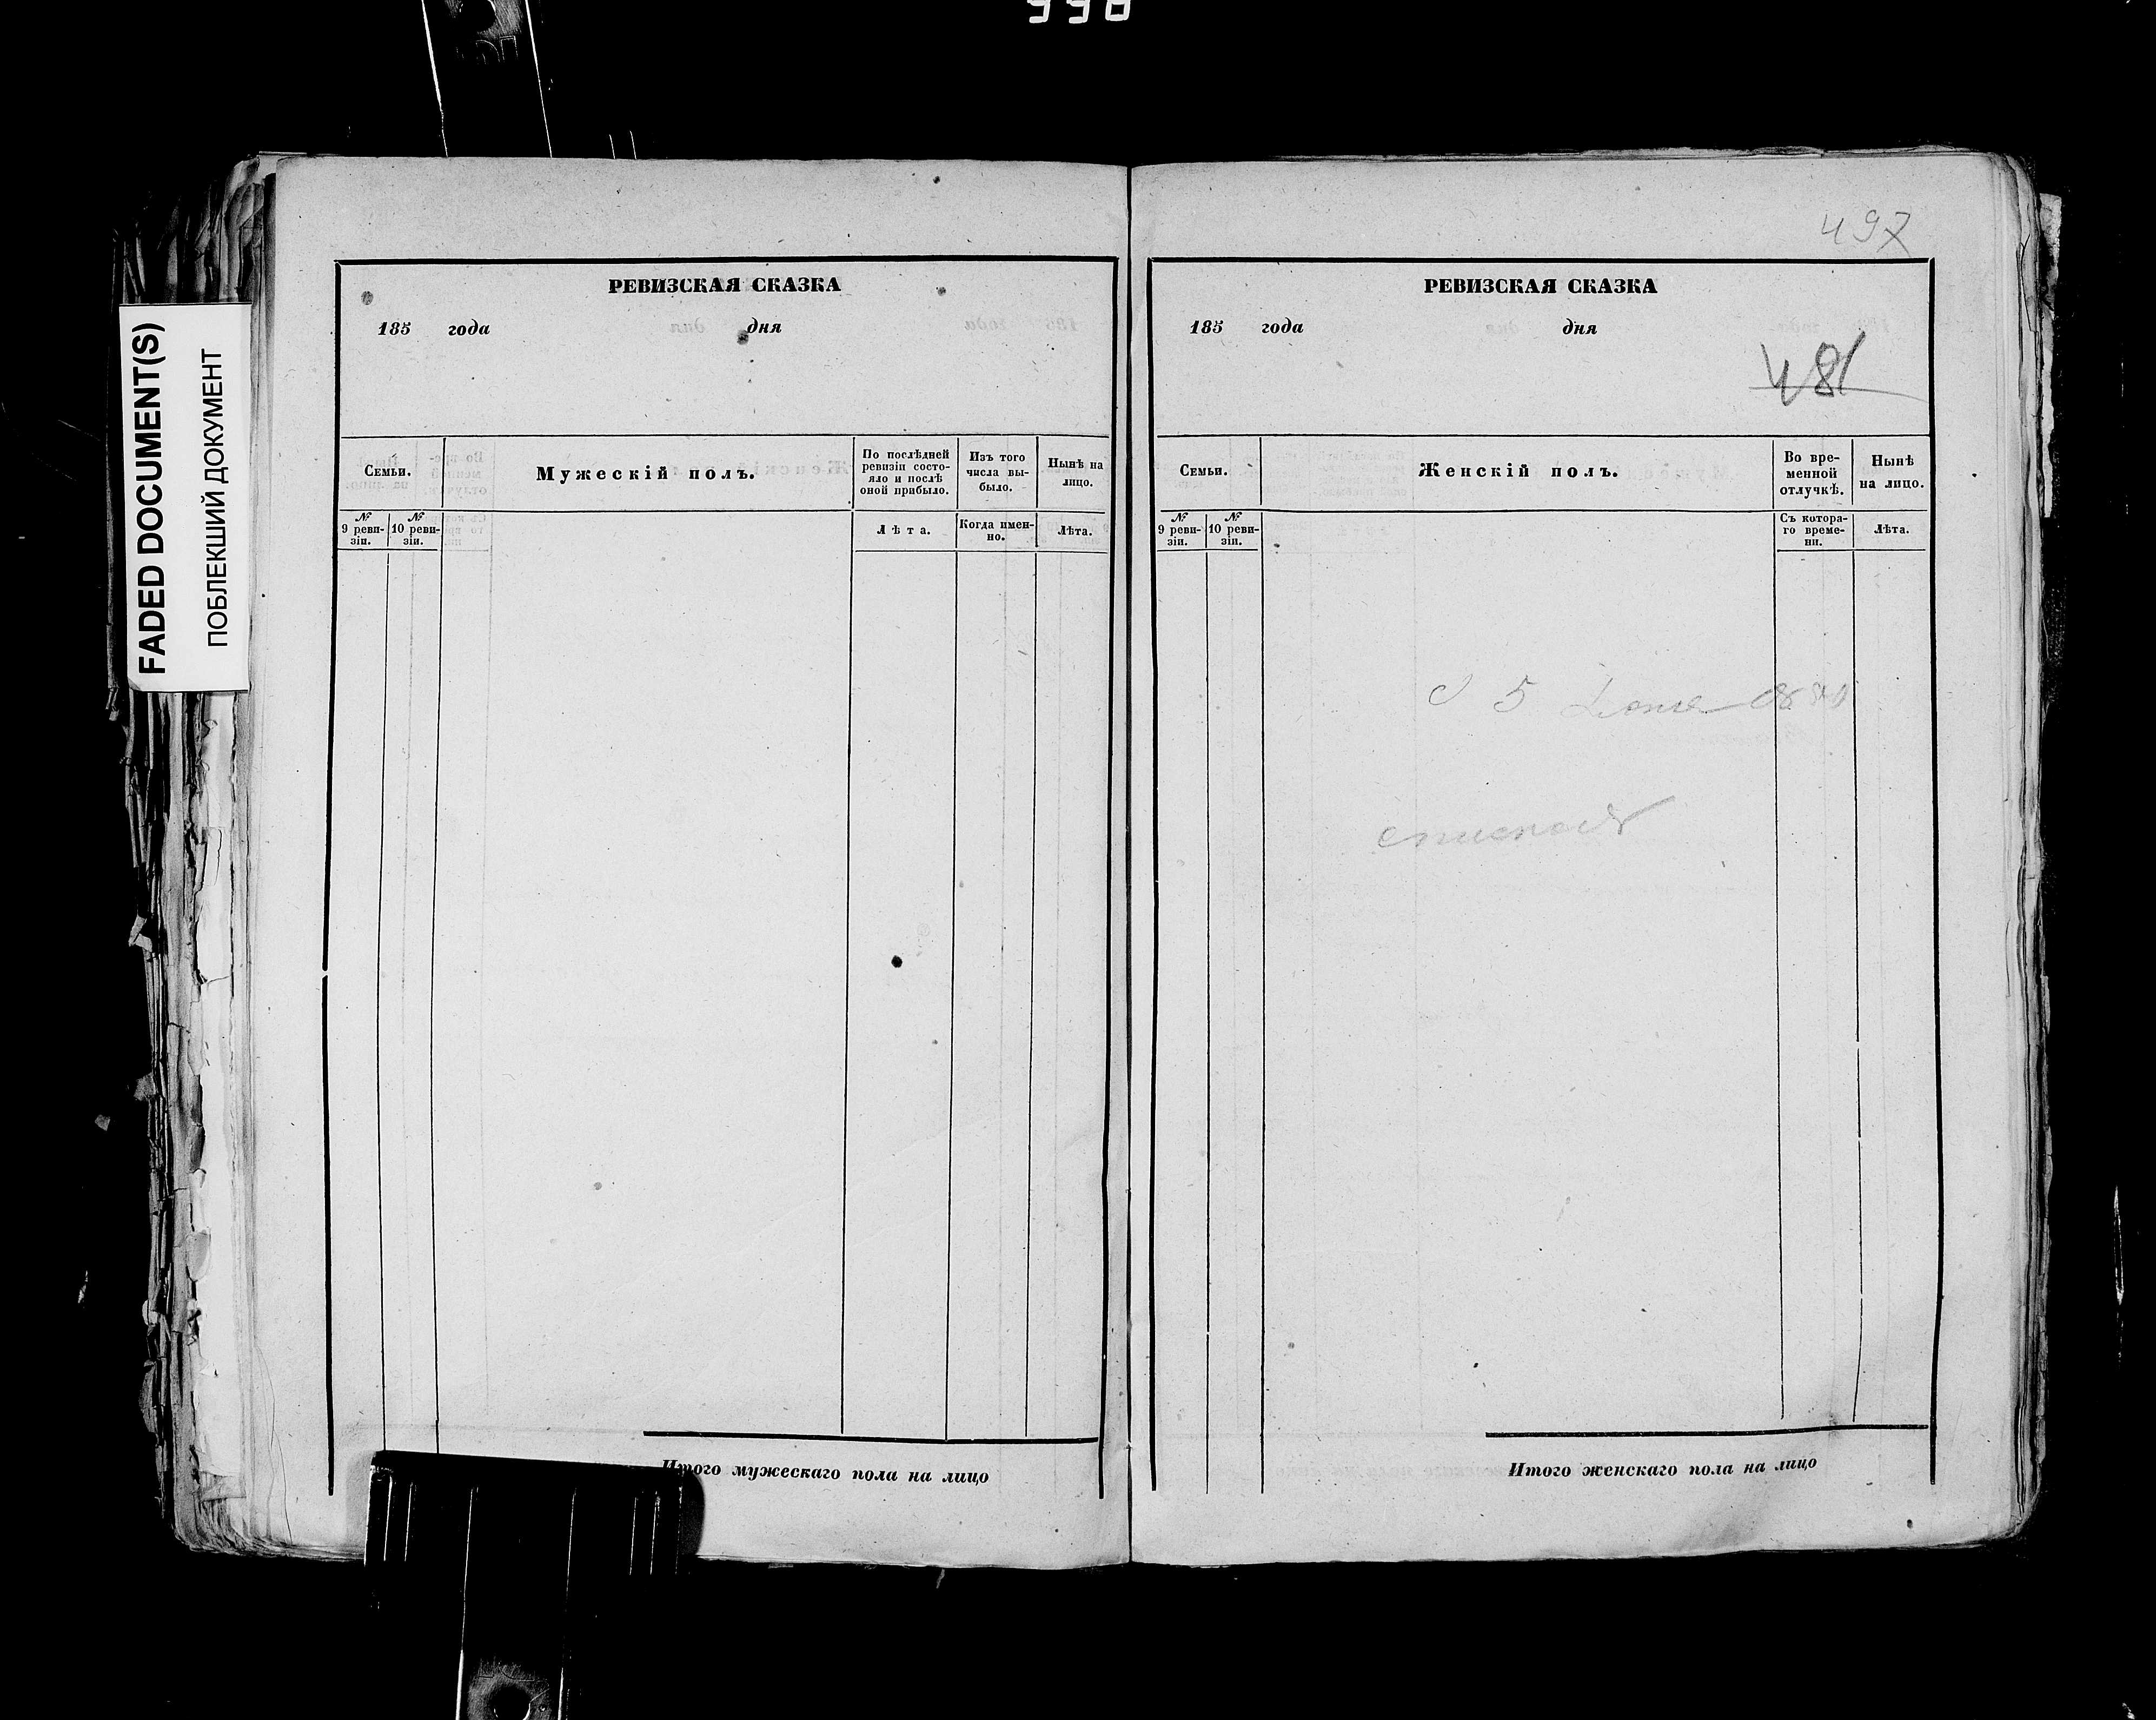 998
FADED DOCUMENT(S)
ПОБЛЕКШИЙ ДОКУМЕНТ
РЕВИЗСКАЯ СКАЗКА
185 года дня
Семьи.
Мужескій полъ.
По послѣдней
ревизіи состо-
яло и послѣ
оной прибыло.
Изъ того
числа вы-
было.
Нынѣ на
лицо.
№
9 реви-
зіи.
№
10 реви-
зіи.
Лѣта.
Когда имен-
но.
Лѣта.
Итого мужескаго пола на лицо
497
РЕВИЗСКАЯ СКАЗКА
185 года дня
481
Семьи.
Женскій полъ.
Во вре-
менной
отлучкѣ.
Нынѣ
на лицо.
№
9 реви-
зіи.
№
10 реви-
зіи.
Съ котора-
го време-
ни.
Лѣта.
5
Итого женскаго пола на лицо